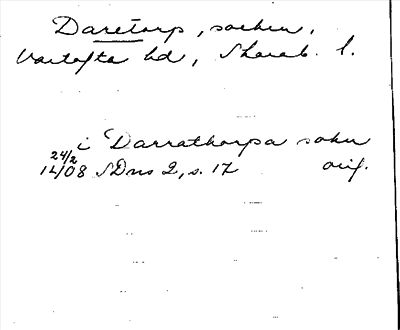 Daretorp, socken,
Vartofta hd, Skarab. l.
i Darrathorpa sokn
24/2
1408 SDns 2, s. 17 orig.